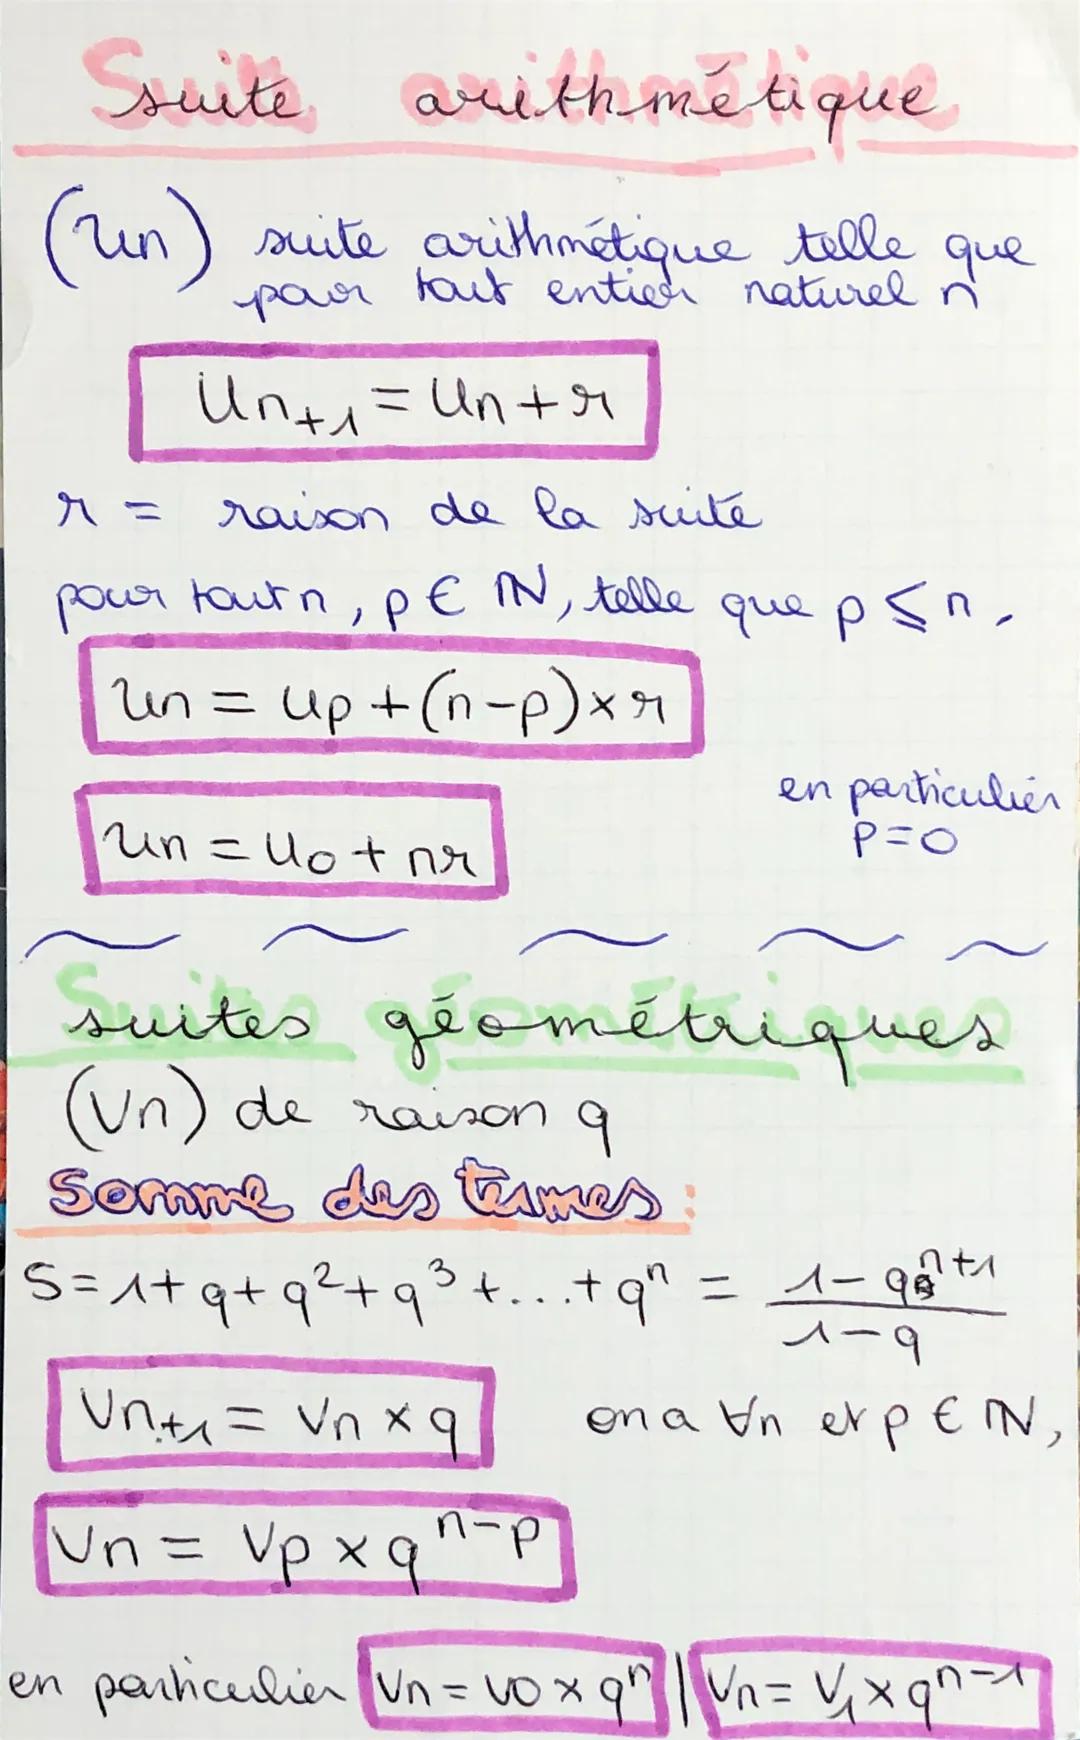 suite arithmétique
(Un) suite arithmétique telle que
pour tout entier naturel n
Un+1 = Un + r
r = raison de la suite
pour tout n, p ∈ ℕ, telle que p ≤ n,
Un = Up + (n-p) × r
en particulier
p=0
Un = U0 + nr
suites géométriques
(Vn) de raison q
Somme des termes :
S = 1 + q + q² + q³ + ... + qⁿ = (1 - qⁿ⁺¹)/(1 - q)
Vn+1 = Vn × q on a ∀n et p ∈ ℕ,
Vn = Vp × qⁿ⁻ᵖ
en particulier Vn = V0 × qⁿ || Vn = V1 × qⁿ⁻¹